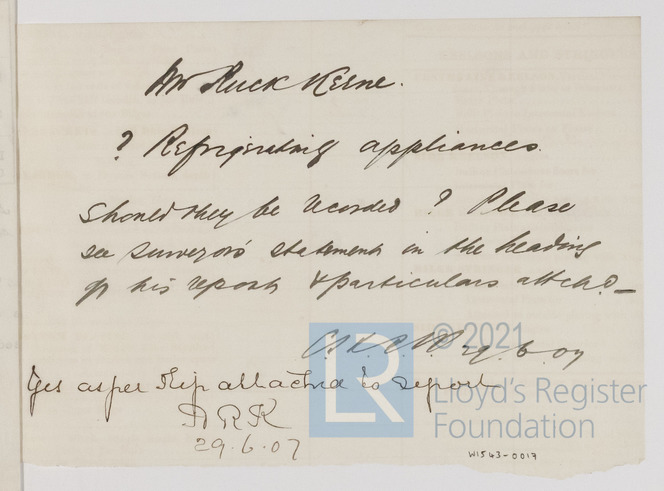 Mr Ruck Keene.
? Refrigerating appliances.
Should they be recorded? Please
see Surveyors statement in the heading
of his report & particulars attchd. —
29.6.07
Yes as per slip attached to report
ARK
29.6.07
© 2021
LR
Lloyd's Register
Foundation
W1543-0017